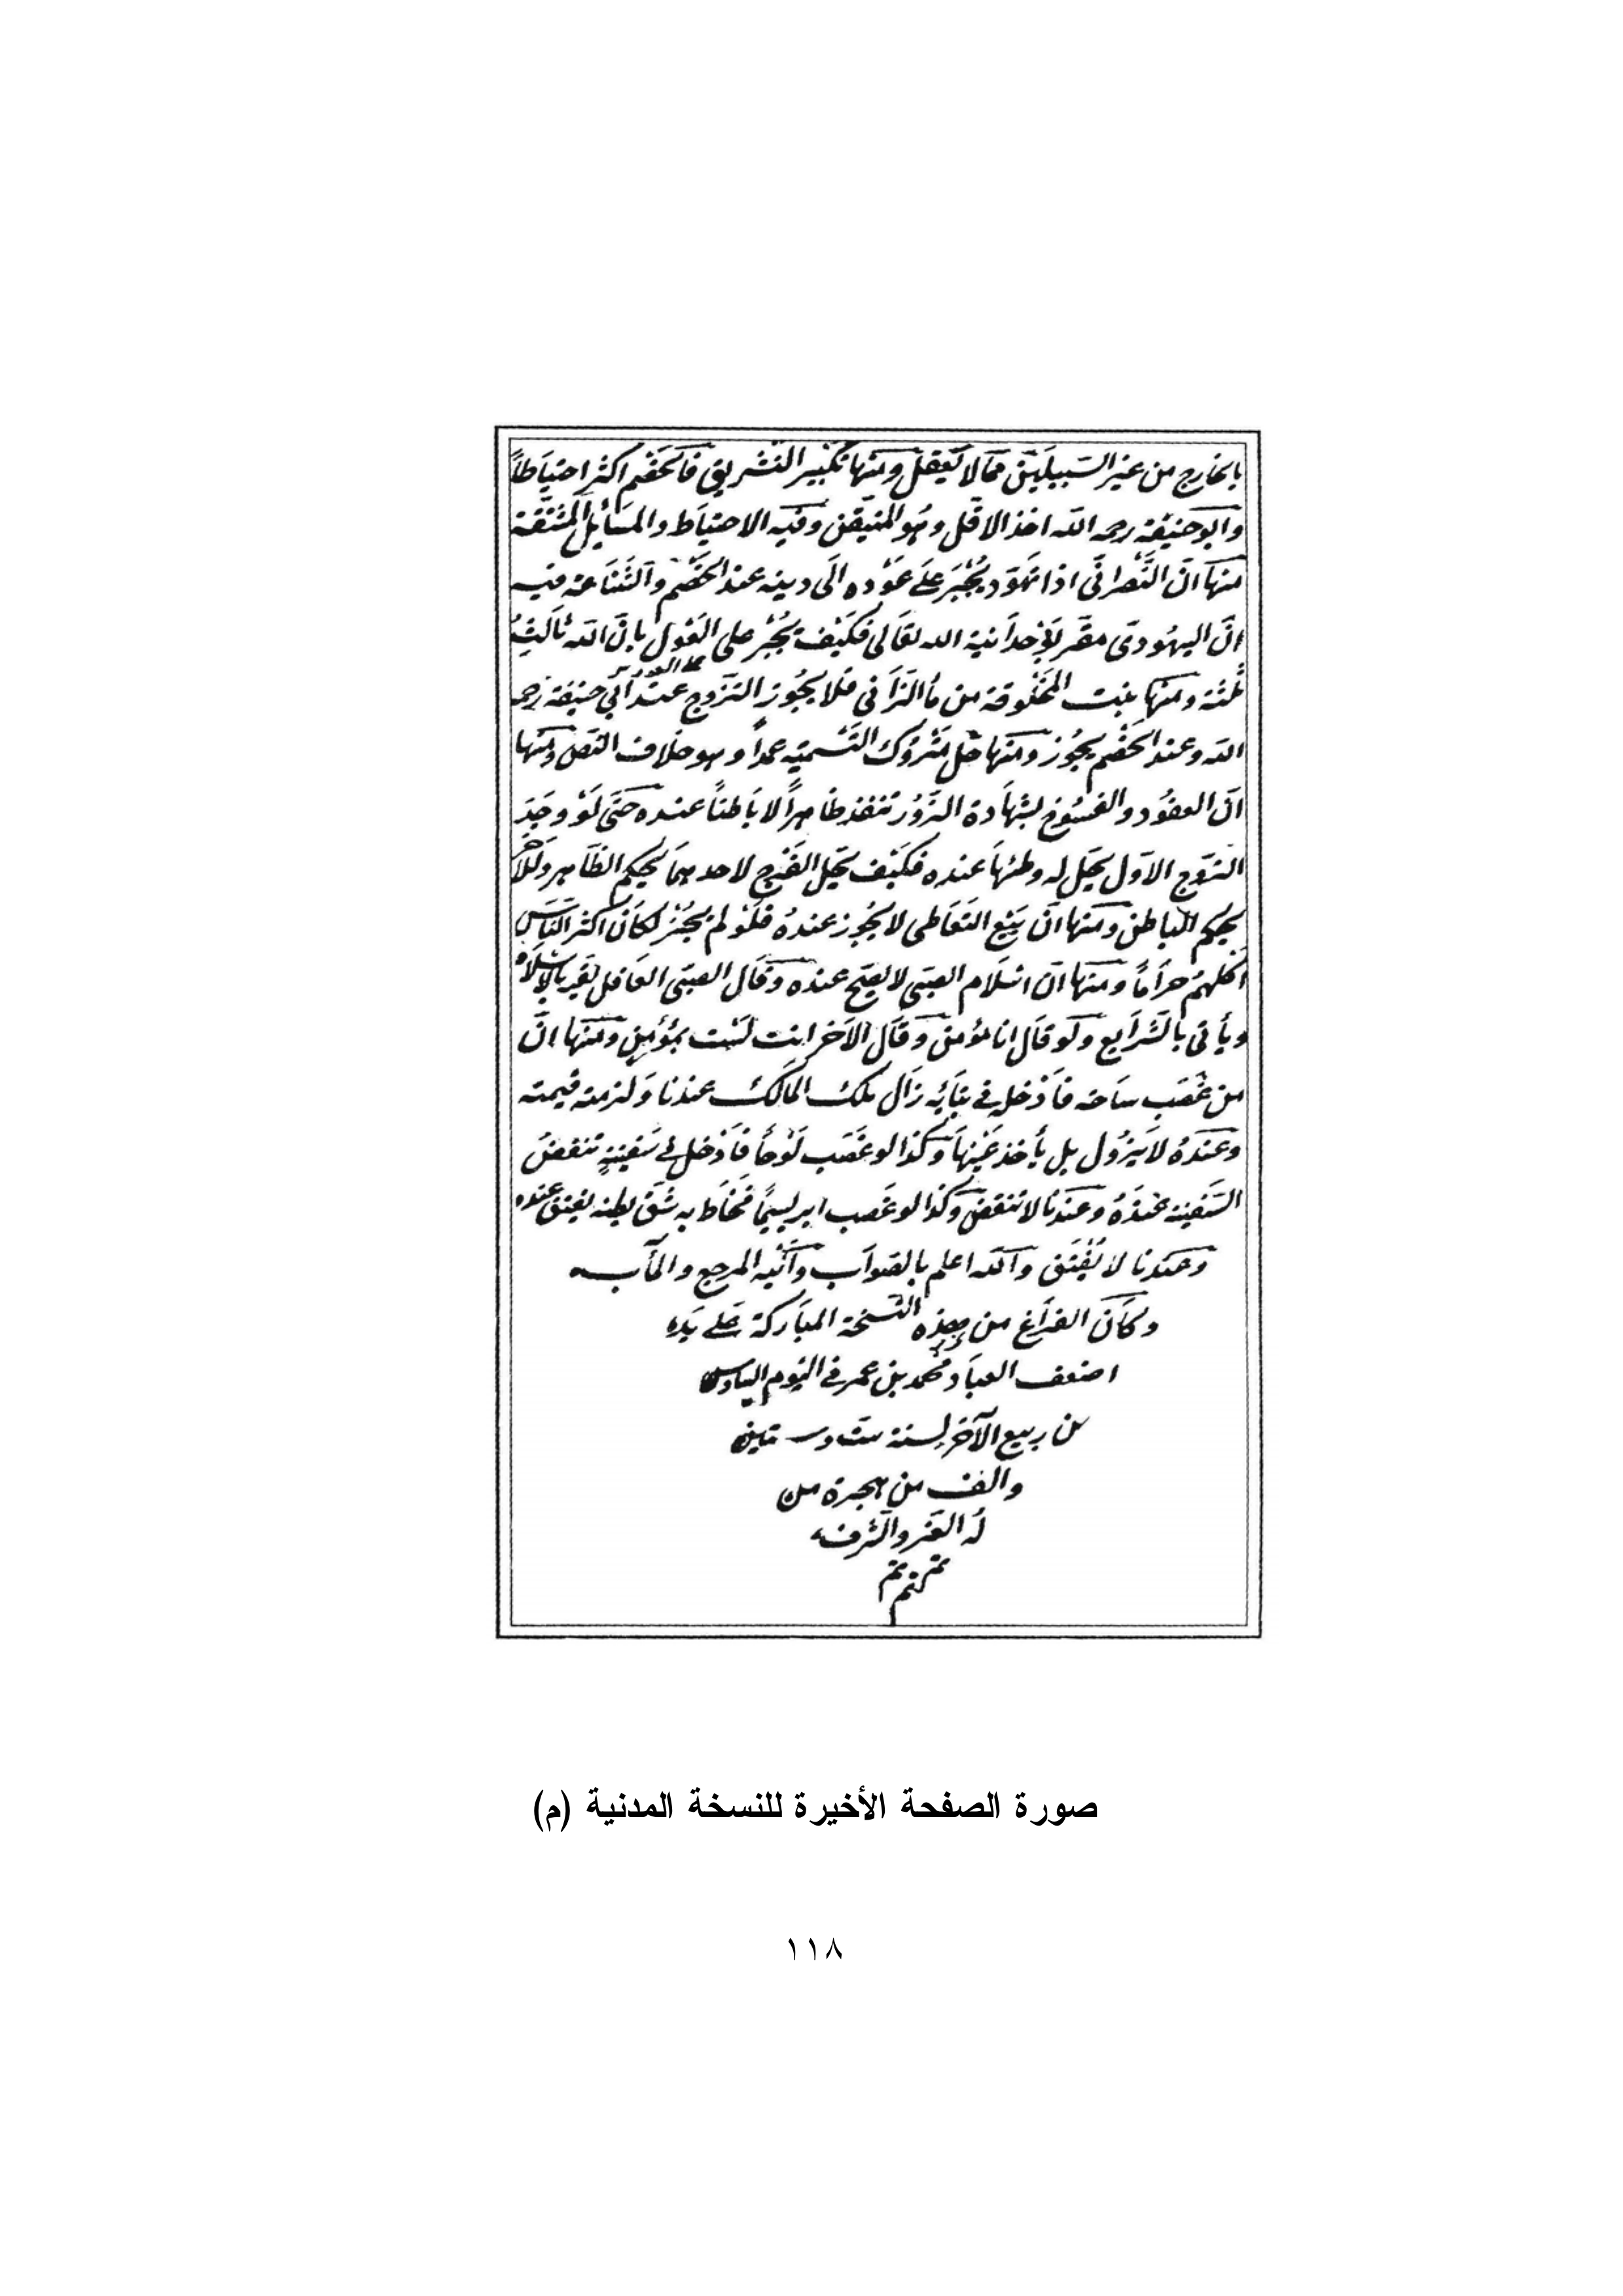 بالخارج من غير السبيلين مما لا يعقل ومنها تكبير التشريق فالخصم اكثر احتياطاً
وابو حنيفة رحمه الله اخذ الاقل وهو المتيقن وفيه الاحتياط والمسائل
منها انّ النّصرانّى اذا تهوّد يُجْبَر علَى عَوْده الَى دينه عند الخَصْم والشناعة فيه
انّ اليهُودىّ مقر بوَحْدَانية الله تعَالى فكَيْف يُجْبر على القول بانّ الله ثالثُ
ثلثة ومنها بنت المخلوقة من مأ الزّانى فلا يجُوز التزوج عند ابي حنيفة رحمه
الله وعند الخصْم يجُوز ومنها حل متروك التَسْميَة عمداً وهو خلاف النص ومنها
انّ العقُود والفسُوخ بشهَادة الزُور تنفذ ظاهراً لا باطناً عنده حتى لَوْ وجدَ
الزوج الاوّل يحل له وطئها عنده فكيْف يحل الفَرْج لاحدهما بحكم الظاهر وللآخر
بحكم الباطن ومنها انّ بَيْع التعَاطى لا يجُوز عندهُ فلَوْ لم يجُزْ لكَانَ اكثر النَاس
اكلهمُ حراماً ومنها انّ اسْلَام الصبىّ لا يصح عنده وقال الصبىّ العاقل يقر بالاسلام
ويأتى بالشَرَايع ولو قال انا مؤمن وقال الآخر انت لَسْت بمُؤمِن ومنها انَّ
من غصَب ساحة فادْخل في بنَائِه زال ملك المالك عندنا ولزمته قيمته
وعندهُ لا يَزُول بل يأخذ عَيْنها وكذا لو غصَب لَوْحاً فادْخل في سَفينةٍ تنقضُ
السَفينة عندهُ وعندنا لا تنقض وكذا لو غصب ابريسيمًا فخاط به شق بطنه يفتق عنده
وعندنا لا يُفْتَق والله اعلم بالصوَاب واليْه المرجع والمآب
وكان الفراغ من هذه النسخة المباركة على يد
اضعف العبَاد محمد بن عمر في اليوم السادس
من ربيع الآخر لسنة ست وستين
والف من هجرة من
لهُ العز والشرف
تم تم تم
صورة الصفحة الأخيرة للنسخة المدنية (م)
١١٨